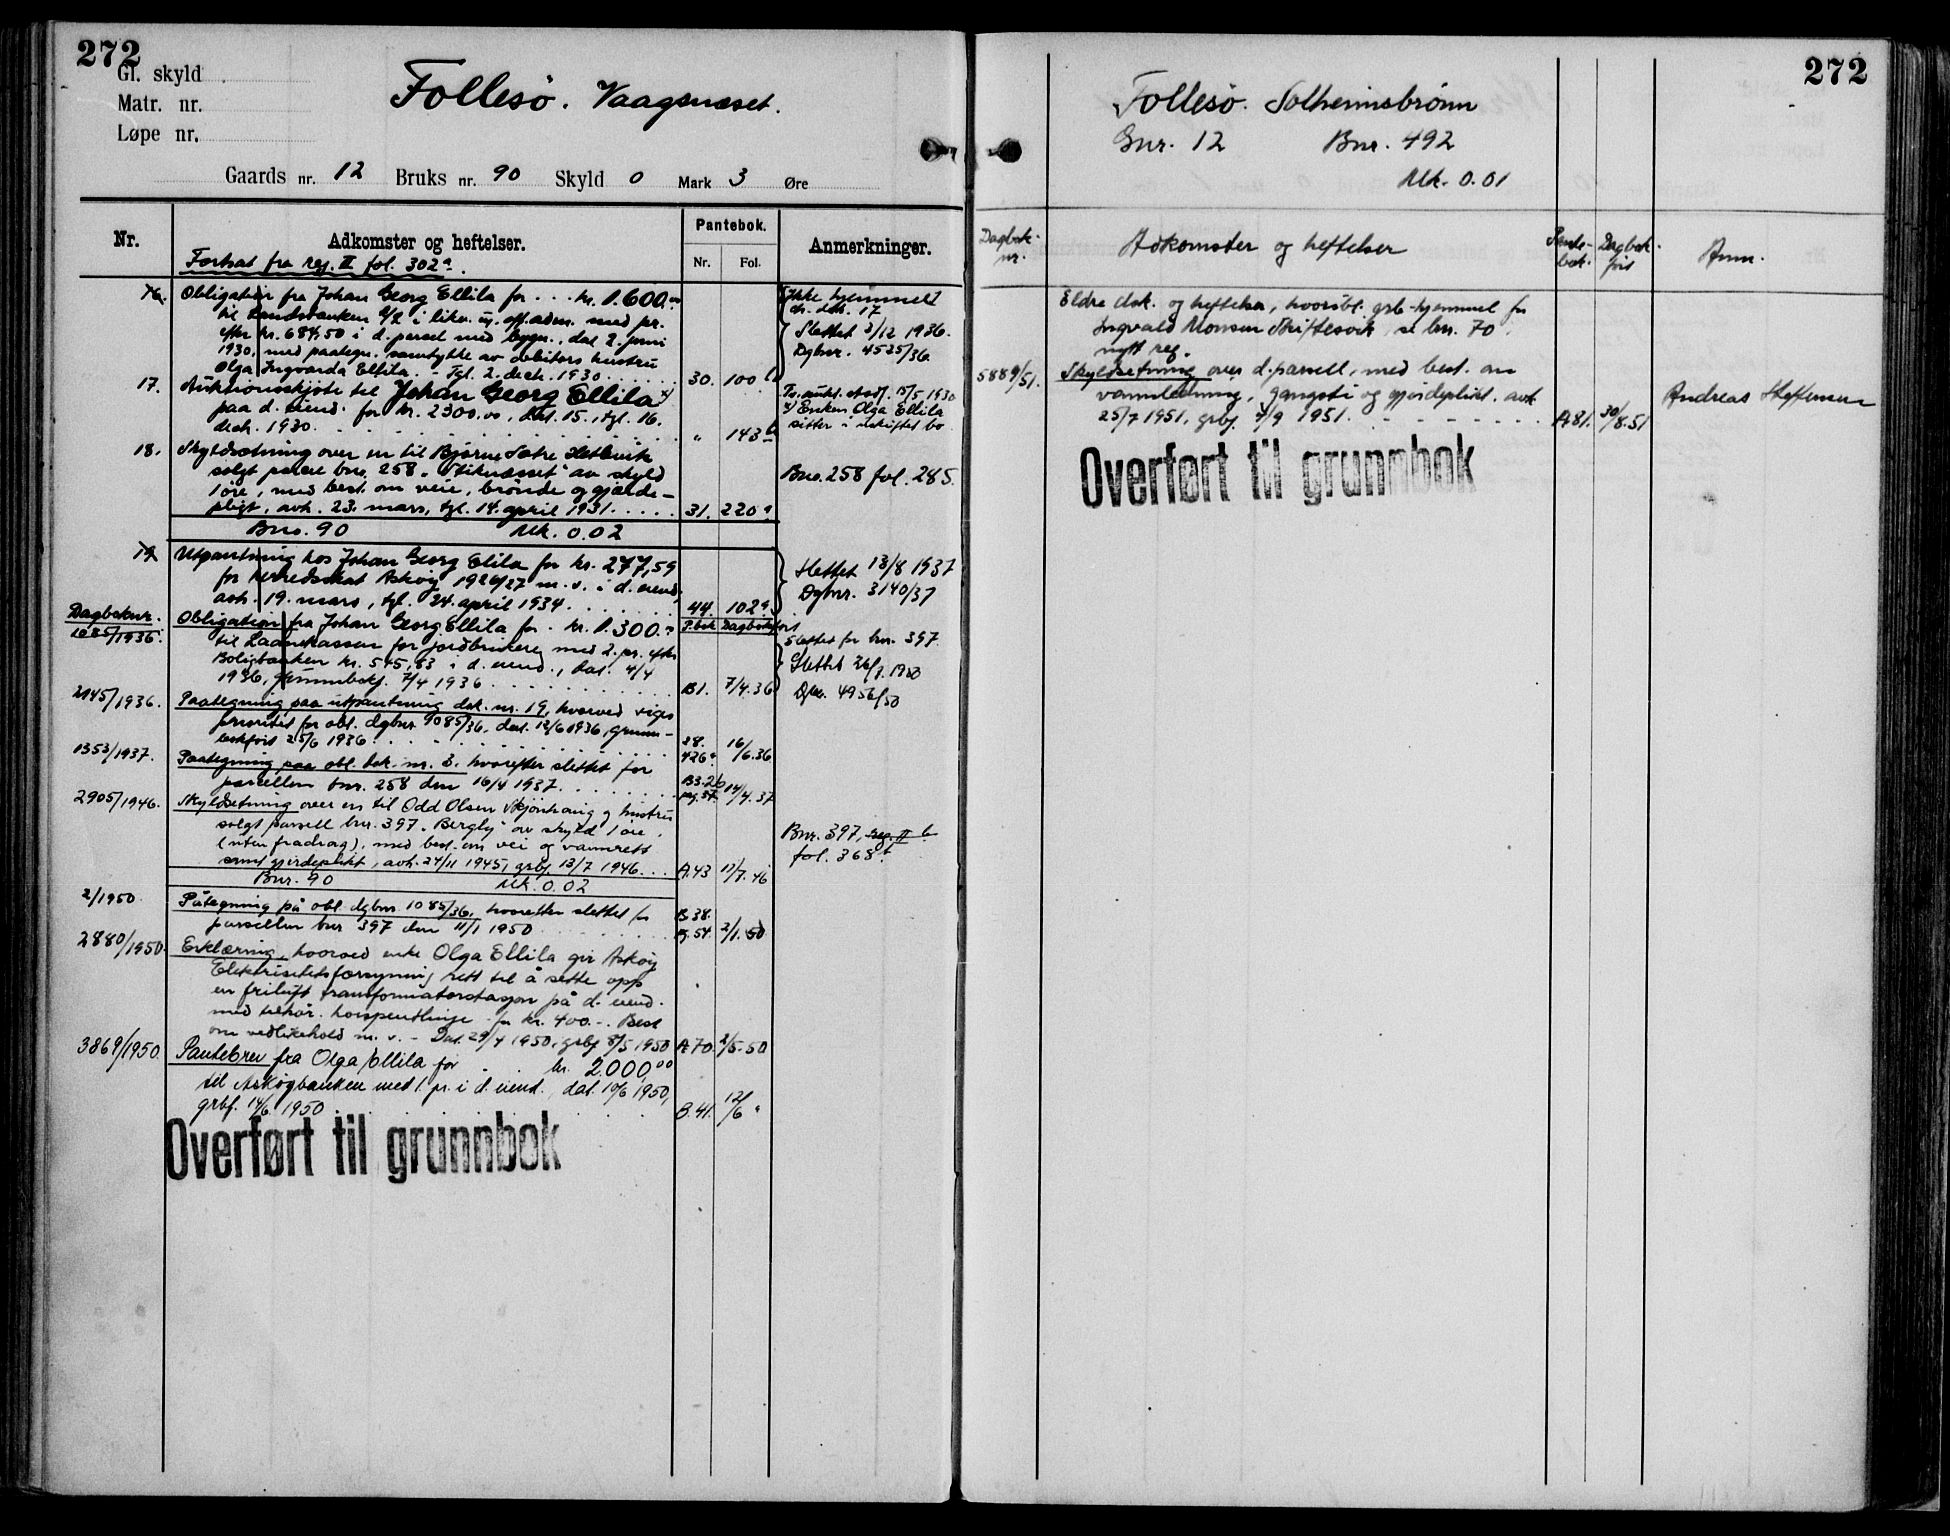 272
Gl. skyld
Matr. nr.
Løpe nr.
Follesö. Vaagsnæset.
Gaards nr. 12 Bruks nr. 90 Skyld 0 Mark 3 Øre
Nr.
Adkomster og heftelser.
Pantebok.
Nr. Fol.
Anmerkninger.
Fortsat fra reg. II fol. 302a.
16. Obligation fra Johan Georg Ellila for . . kr. 1.600.00
til Landsbanken A/S i likv. og off. adm. med pr.
efter kr. 684,50 i d. parsel med bygn., dat 2. juni
1930, med paategn. samtykke av debitors hustru
Olga Ingvarda Ellila. - Tgl. 2. decb. 1930 . . . . . 30. 100
Ikke hjemmel
cfr. dok. 17
Slettet 3/12 1936.
Dgbnr. 4525/36
17. Auktionsskjöte til Johan Georg Ellila x)
paa d. eiend. for kr. 2300.00, dat. 15., tgl. 16.
decb. 1930. . . . . " 143b
Tv. aukt. 15/5 1930
x) Enken, Olga Ellila
sitter i uskiftet bo
18. Skyldsætning over en til Bjarne Sætre Hetlevik
solgt parcel bnr. 258 av skyld
1 öre, med best. om veie, brönde og gjærde-
pligt, avh. 23. mars, tgl. 14. april 1931 . . . . . 31. 220a
Bnr. 258 fol. 285.
Bnr. 90 Mk. 0.02
19. Utpantning hos Johan Georg Ellila for kr. 277,59
for herredsskat Askøy 1926/27 m. v. i d. eiend.
avh. 19. mars, tgl. 24. april 1934 . . . . . 44. 102a
Slettet 13/8 1937
Dgbnr. 3140/37
Dagboknr. P.bok Dagbokført
1085/1936. Obligation fra Johan Georg Ellila for . kr. 1.300.
til Laanekassen for jordbrukere med 2. pr. efter
Boligbanken kr. 545,83 i d. eiend., dat. 4/4
1936, grunnbokf. 7/4 1936 . . . . . B1. 7/4.36
Slettet for bnr. 397
Slettet 26/7.1950
Dgbnr. 4956/50
2145/1936. Paategning paa utpantning dok. nr. 19, hvorved viges
prioritet for obl. dgbnr 1085/36, dat. 12/6 1936, grunn-
bokført 25/6 1936 . . . . . 38. 426a 16/6.36
1353/1937. Paategning paa obl. dok. nr. 3. hvorefter slettet for
parsellen bnr. 258 den 16/4 1937 . . . . . 14/4.37
2905/1946. Skyldsetning over en til Odd Olsen Skjönhaug og hustru
solgt parsell bnr. 397 "Bergly" av skyld 1 öre,
(uten fradrag), med best. om vei og vannrett
samt gjerdeplikt, avh. 24/11 1945, grbf. 13/7 1946 . . . A.43 11/7.46
Bnr. 397, reg. II b
fol. 368b
Bnr. 90 Mk. 0.02
2/1950. Påtegning på obl. dgbnr 1085/36, hvorefter slettet for
parsellen bnr 397 den 11/1 1950 . . . . . B 38. 2/1.50
pg. 54.
2880/1950. Erklæring, hvorved enke Olga Ellila gir Askøy
Elektrisitetsforsyning rett til å sette opp
en friluft transformatorstasjon på d. eiend.
med tilhør. høyspentlinje for kr. 400.-. Best
om vedlikehold m. v. - Dat. 29/4 1950, grbf 8/5 1950 A 70. 2/5.50
3869/1950. Pantebrev fra Olga Ellila for . . kr. 2.000,00
til Askøybanken med 1. pr. i d. eiend., dat. 10/6 1950,
grbf. 14/6 1950 . . . . . B.41. 12/6 "
Overført til grunnbok
272
Follesö. Solheimsbrönn
Gnr. 12 Bnr. 492
Mk. 0.01
Dagbok-nr. Adkomster og heftelser Pante-bok. Dagbok-ført Anm.
Eldre dok. og heftelser, hvoribl. grb-hjemmel for
Ingvald Monsen Skiftesvik se bnr. 70.
nytt reg.
5889/51. Skyldsetning over d. parsell, med best. om
vannledning, gangsti og gjerdeplikt. avh
25/7 1951, grbf 7/9 1951. - - - - - A 81. 30/8.51
Andreas Steffensen
Overført til grunnbok